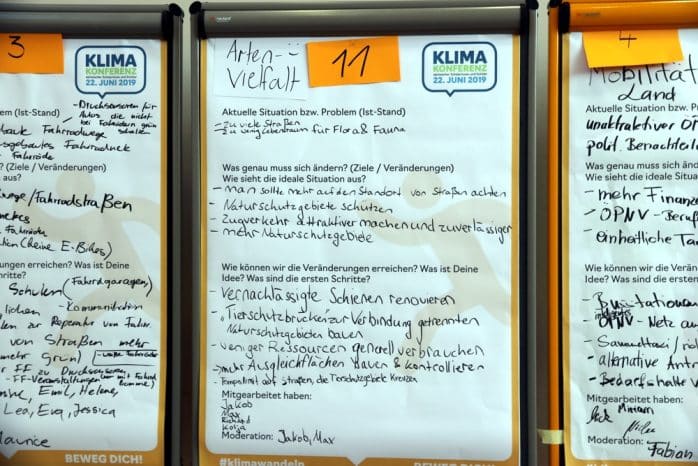 3
KLIMA
KONFERENZ
22. JUNI 2019
- Drucksensoren für
Autos die nicht
bei Fahrrädern grün
schalten
em (Ist-Stand)
Fahrradwege
Fahrradnetz
? (Ziele / Veränderungen)
aus?
wege/Fahrradstraßen
(keine E-Bikes)
ungen erreichen? Was ist Deine
hritte?
Schulen (Fahrradgaragen)
Kommunikation
zur Reperatur von Fahrr.
von Straßen mehr
mehr Grün)
FF zu Drucksensoren
Emil, Helene,
Lea, Eva, Jessica
Maurice
BEWEG DICH!
Arten-
vielfalt
11
KLIMA
KONFERENZ
22. JUNI 2019
Aktuelle Situation bzw. Problem (Ist-Stand)
- zu viele Straßen
- zu wenig Lebensraum für Flora & Fauna
Was genau muss sich ändern? (Ziele / Veränderungen)
Wie sieht die ideale Situation aus?
- man sollte mehr auf den Standort von Straßen achten
- Naturschutzgebiete schützen
- Zugverkehr attraktiver machen und zuverlässiger
- mehr Naturschutzgebiete
Wie können wir die Veränderungen erreichen? Was ist Deine
Idee? Was sind die ersten Schritte?
- Vernachlässigte Schienen renovieren
- "Tierschutzbrücke" zur Verbindung getrennten
Naturschutzgebieten bauen
- weniger Ressourcen generell verbrauchen
- mehr Ausgleichflächen bauen & kontrollieren
- Tempolimit auf Straßen, die Tierschutzgebiete kreuzen
Mitgearbeitet haben:
Jakob
Max
Richard
Kolja
Moderation: Jakob, Max
#klimawandeln
BEWEG DICH!
4
Mobilität
Land
Aktuelle Situation bzw. P
unaktraktiver ÖP
polit. Benachteil
Was genau muss sich änd
Wie sieht die ideale Situa
- mehr Finanz
- ÖPNV - Beru
- einheitliche Ta
Wie können wir die Verä
Idee? Was sind die erste
ÖPNV - Netz a
- Sammeltaxi / rol
- alternative Antr
- Bedarfshalte
Mitgearbeitet haben:
Miriam
Moderation: Fabian